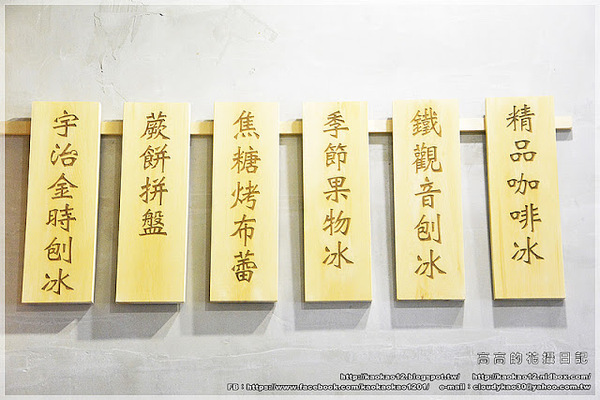 精品咖啡冰
鐵觀音刨冰
季節果物冰
焦糖烤布蕾
蕨餅拼盤
宇治金時刨冰
高高的花扭日記
http://kaokao12.blogspot.tw/ http://kaokao12.nidbox.com/
FB：https://www.facebook.com/kaokaokao1201/ e-mail：cloudykao30@yahoo.com.tw